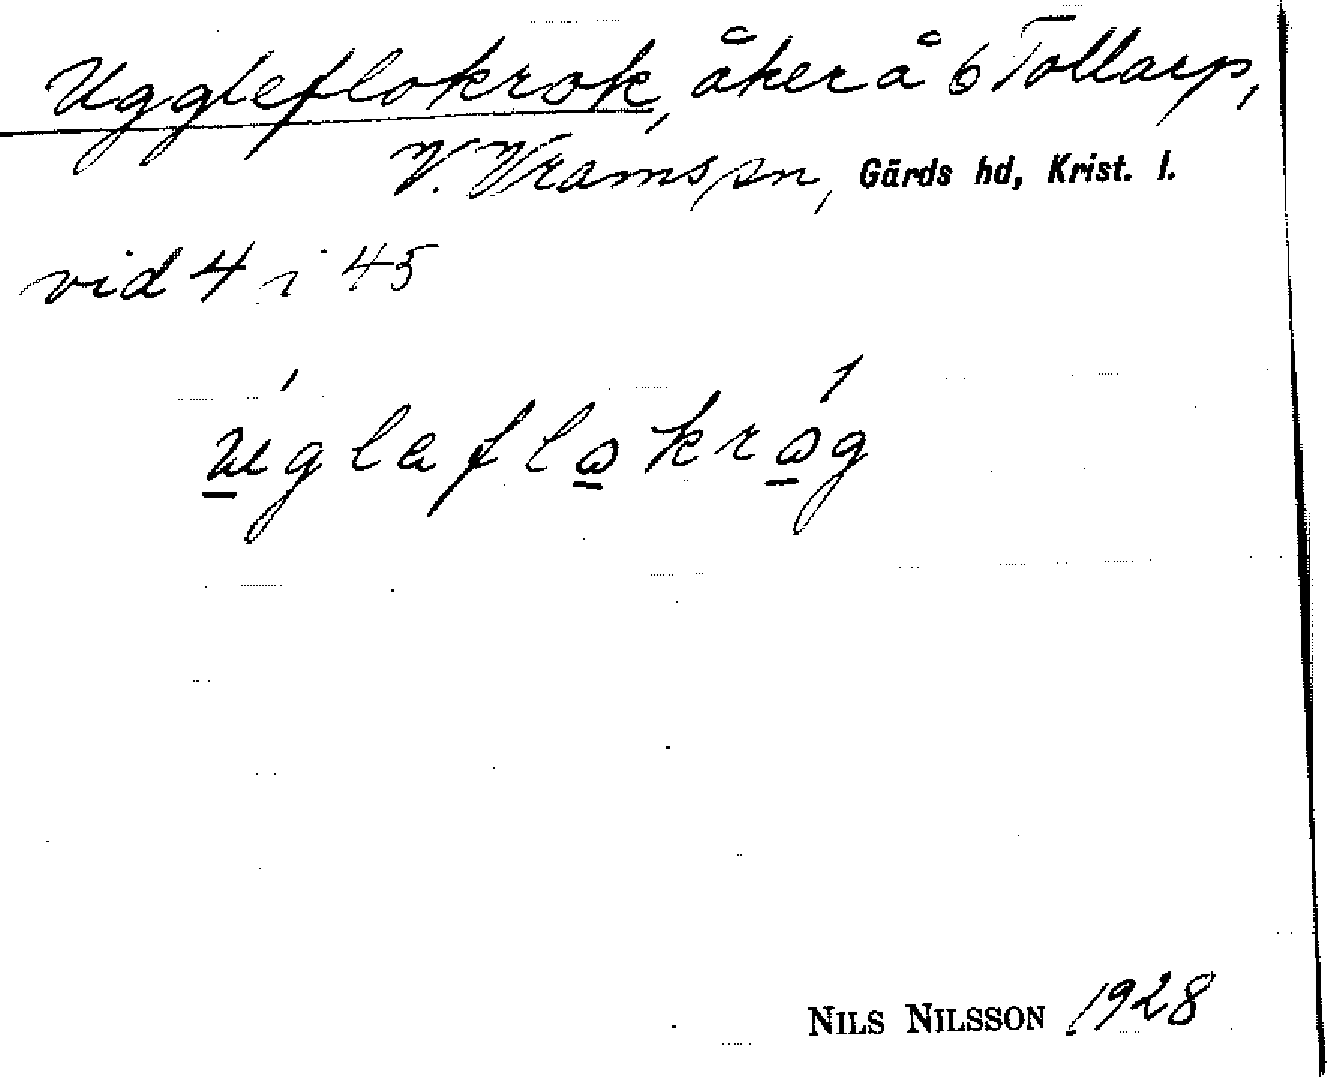 Uggleflokrok, åker å 6 Tollarp,
V. Vrams sn, Gärds hd, Krist. l.
vid 4 i 45
úglaflo̲kro̲g
NILS NILSSON 1928